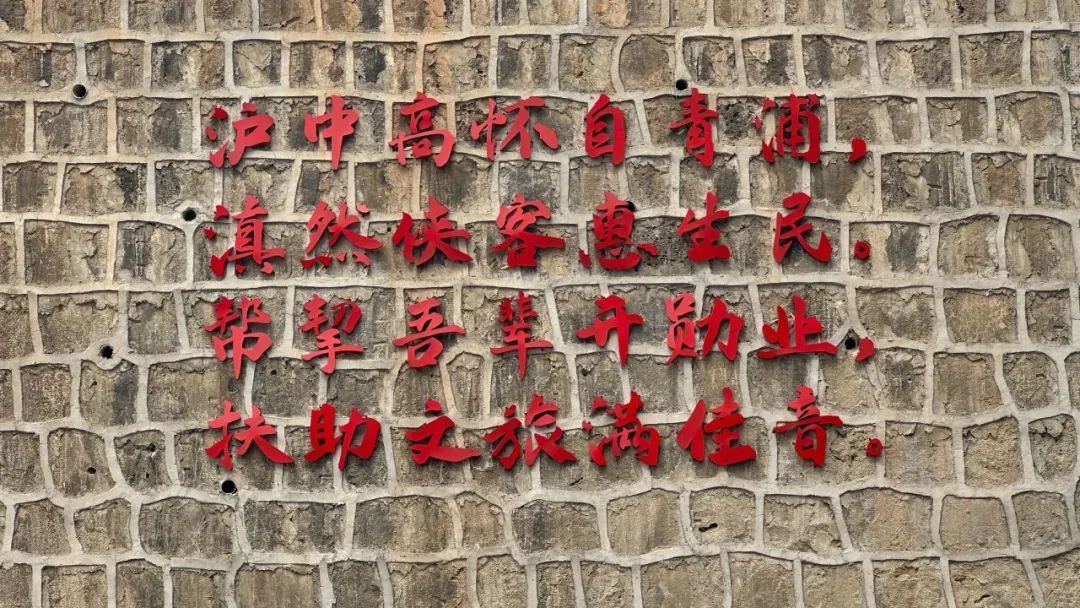 沪中高怀自青浦，
滇然侠客惠生民。
帮挈吾辈开勋业，
扶助文旅满佳音。